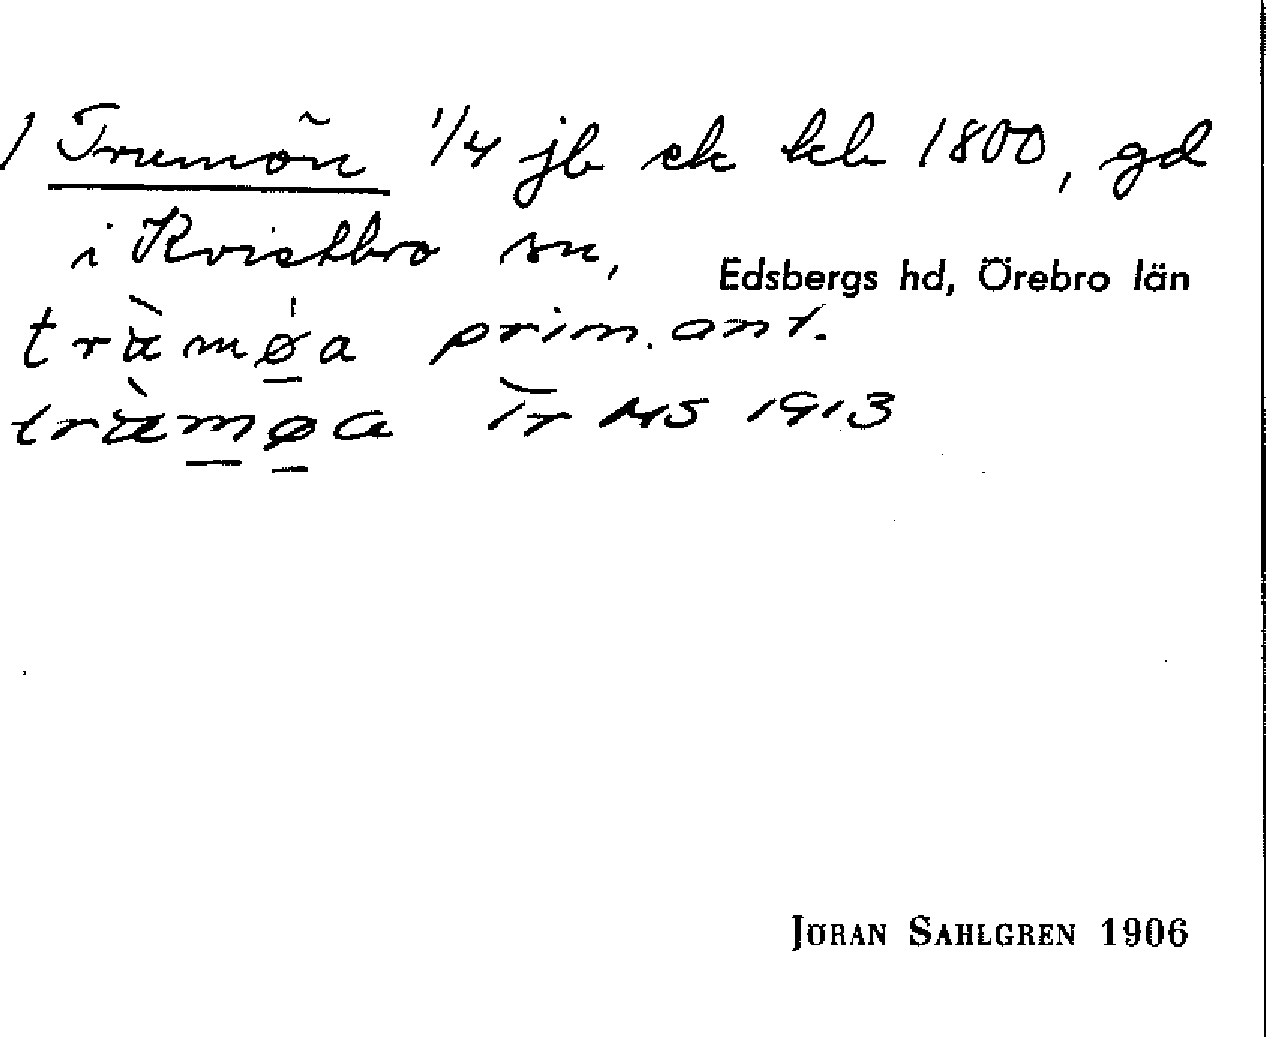 1 Trumön 1/4 jb sk kb 1800, gd
i Kvistbro sn,
Edsbergs hd, Örebro län
tràmø̱a prim. ant.
tràm̱ø̱a Ir MS 1913
JÖRAN SAHLGREN 1906